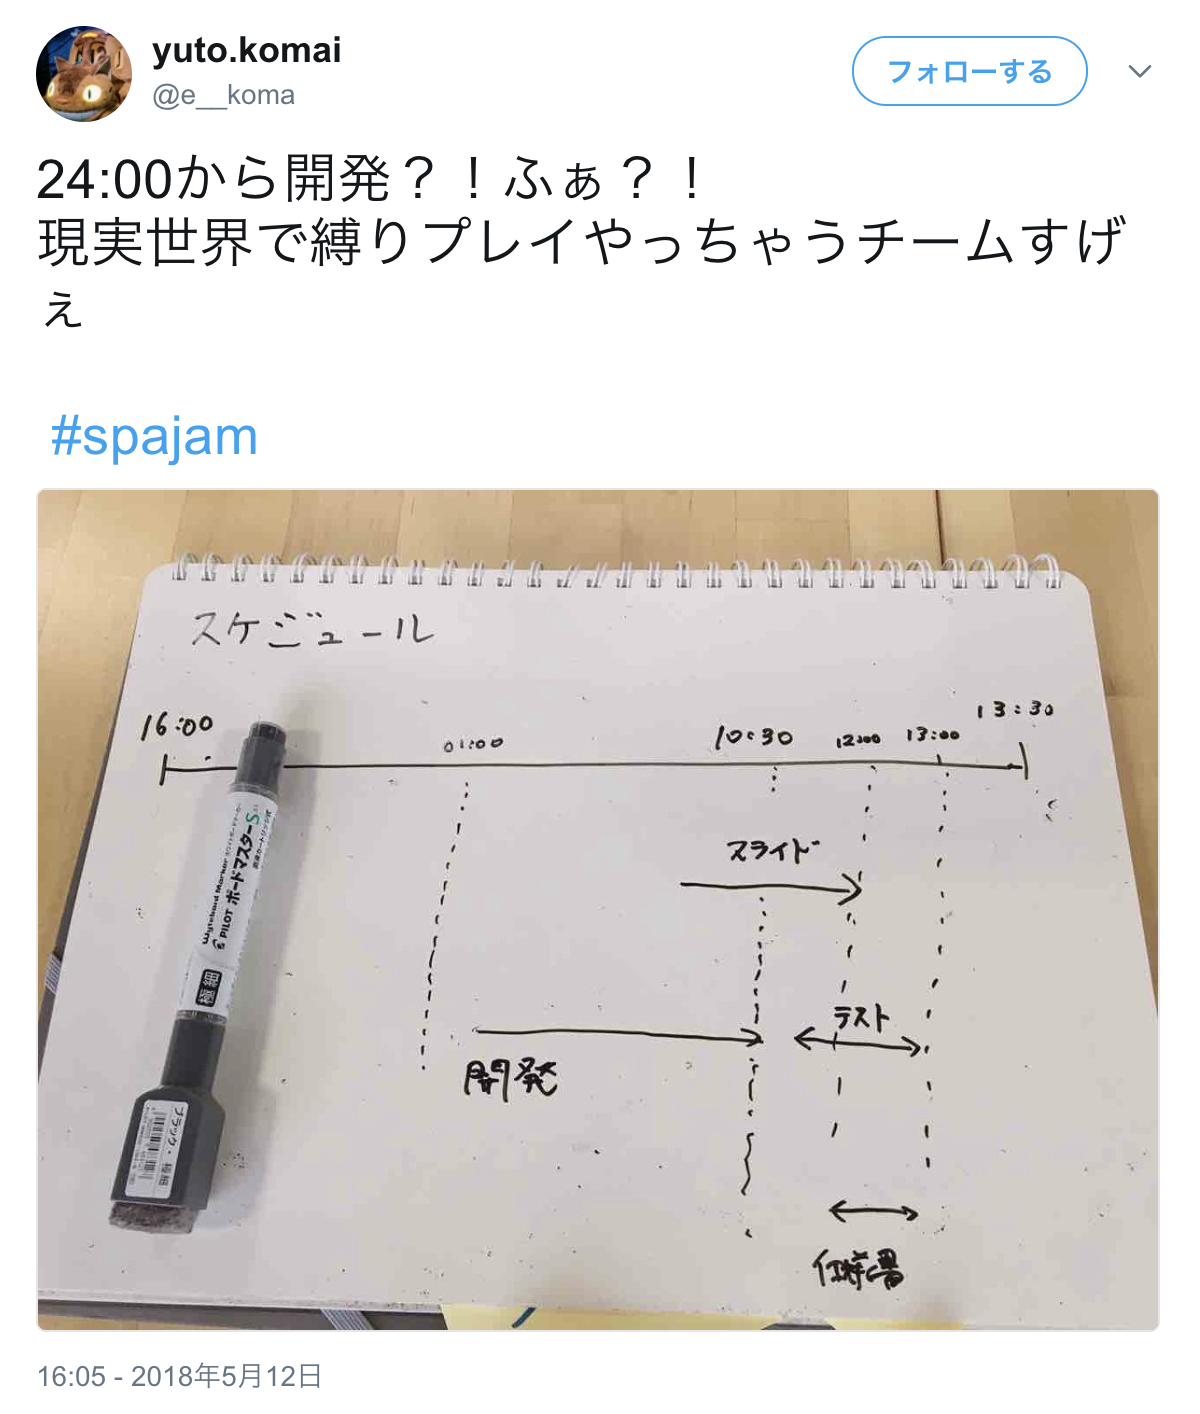 yuto.komai
@e__koma
フォローする
24:00から開発？！ふぁ？！
現実世界で縛りプレイやっちゃうチームすげ
ぇ
#spajam
スケジュール
16:00
01:00
10:30
12:00
13:00
13:30
スライド
テスト
開発
仕様書
Sーター ボードマスター
Whiteboard Marker
PILOT
極細
ブラック・極細
16:05 - 2018年5月12日